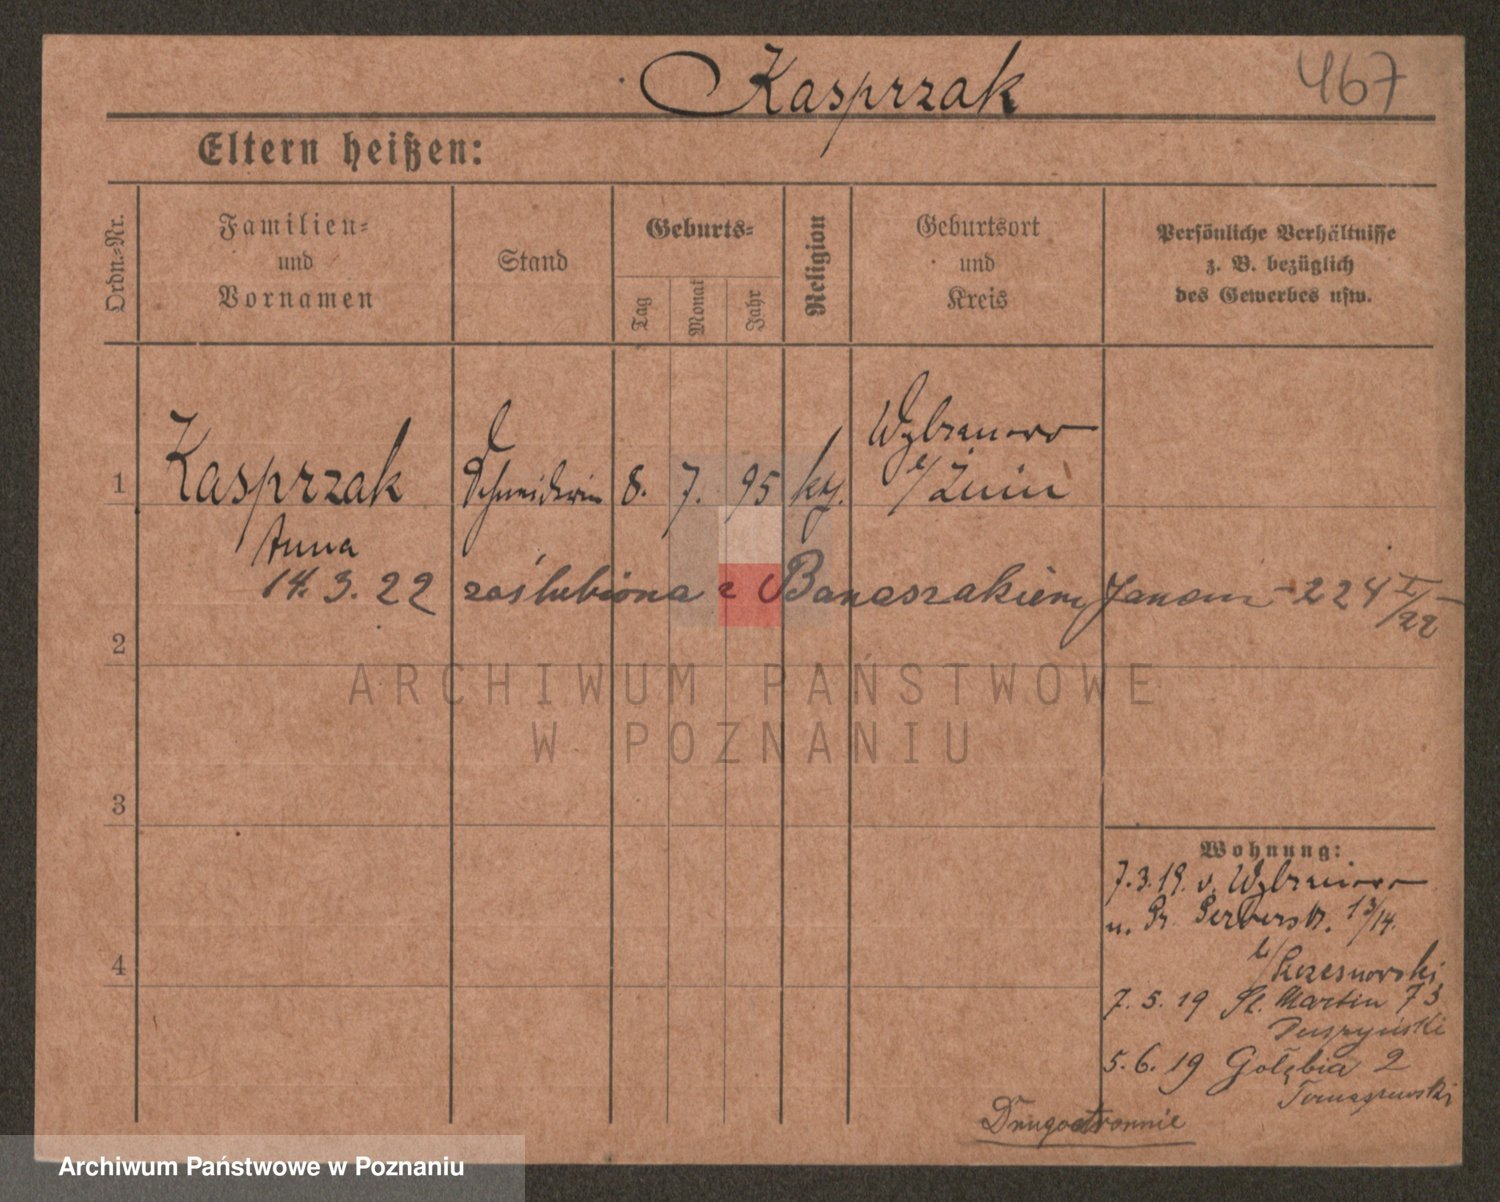 Kasprzak 467
Eltern heißen:
Ordn.=Nr.
Familien=
und
Vornamen
Stand
Geburts=
Tag
Monat
Jahr
Religion
Geburtsort
und
Kreis
Persönliche Verhältnisse
z. B. bezüglich
des Gewerbes usw.
1 Kasprzak Schneiderin 8. 7. 95 Wybranowo
Żnin
Anna
14. 3. 22 zaślubiona z Banaszakiem Janem - 224 I/22
2
ARCHIWUM PAŃSTWOWE
W POZNANIU
3
Wohnung:
7.3.19. v. Wybranowo
n. Gerberstr. 13/14.
4
7. 5. 19 St. Martin 73
5. 6. 19 Gołębia 2
Tomaszewski
Drugostronnie
Archiwum Państwowe w Poznaniu